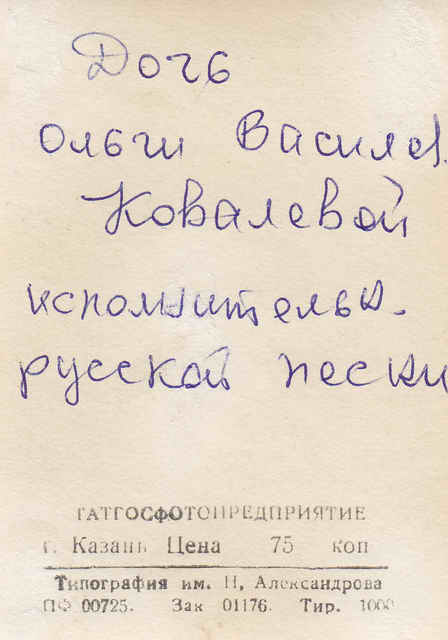 Дочь
Ольги Василев.
Ковалевой
исполнительн.
русской песни
ТАТГОСФОТОПРЕДПРИЯТИЕ
г. Казань Цена 75 коп
Типография им. Н, Александрова
ПФ 00725. Зак 01176. Тир. 1000